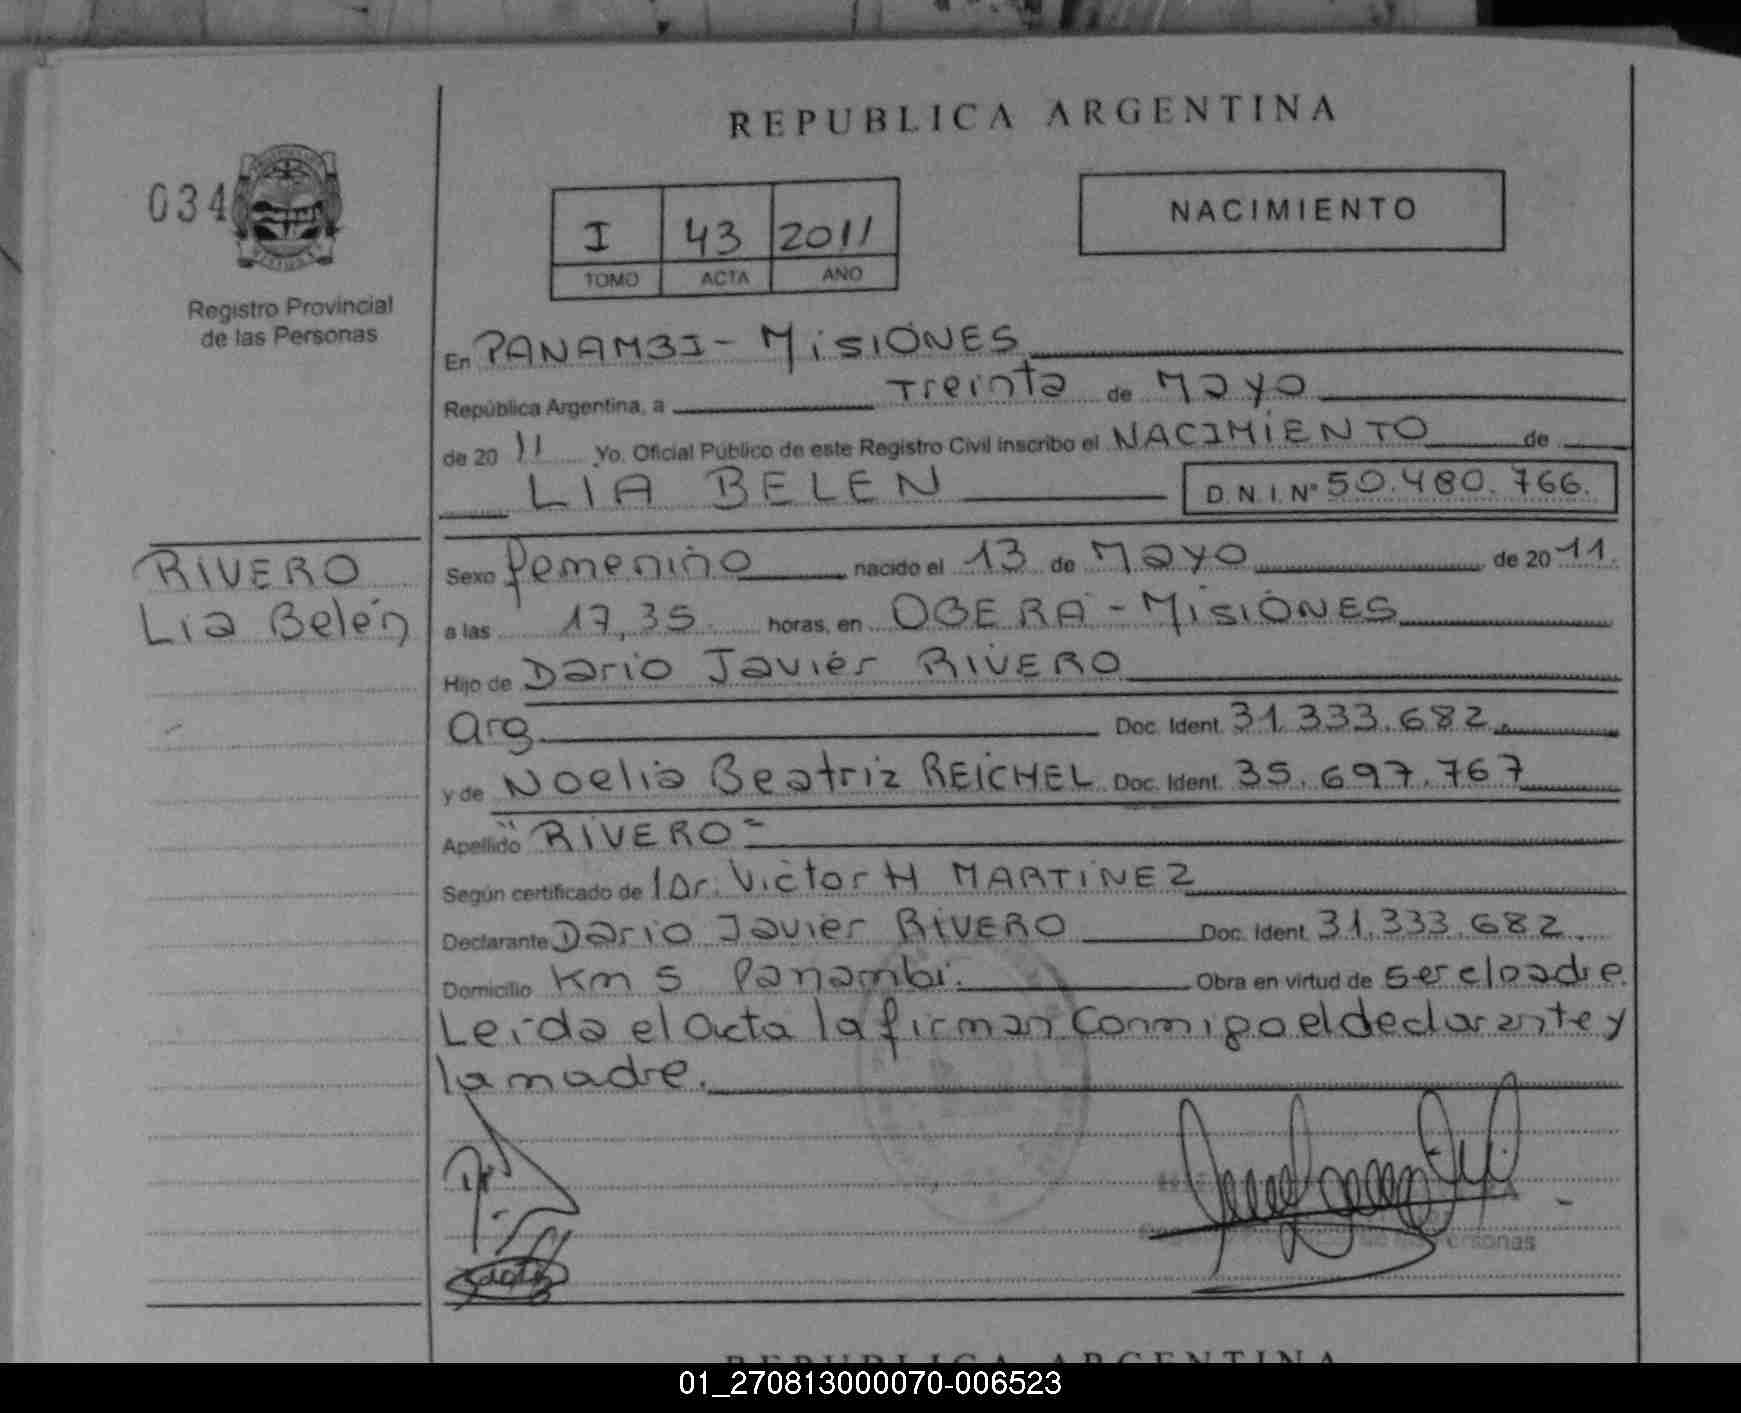 REPUBLICA ARGENTINA
034
I 43 2011
TOMO ACTA AÑO
NACIMIENTO
Registro Provincial
de las Personas
En PANAMBI - MisiONES
República Argentina, a Treinta de Mayo
de 20 11 Yo. Oficial Público de este Registro Civil inscribo el NACIMIENTO de
LIA BELEN D.N.I. Nº 50.480.766.
RIVERO
Lia Belén
Sexo femenino nacido el 13 de Mayo de 2011.
a las 17,35 horas, en OBERA - MisiONES
Hijo de Dario Javier RIVERO
Arg Doc. Ident. 31.333.682.
y de Noelia Beatriz REICHEL Doc. Ident. 35.697.767
Apellido "RIVERO"
Según certificado de Dr. Victor H MARTINEZ
Declarante Dario Javier RIVERO Doc. Ident. 31.333.682.
Domicilio Km 5 Panambi. Obra en virtud de ser el padre.
Leida el acta la firman Conmigo el declarante y
la madre.
ersonas
REPUBLICA ARGENTINA
01_270813000070-006523